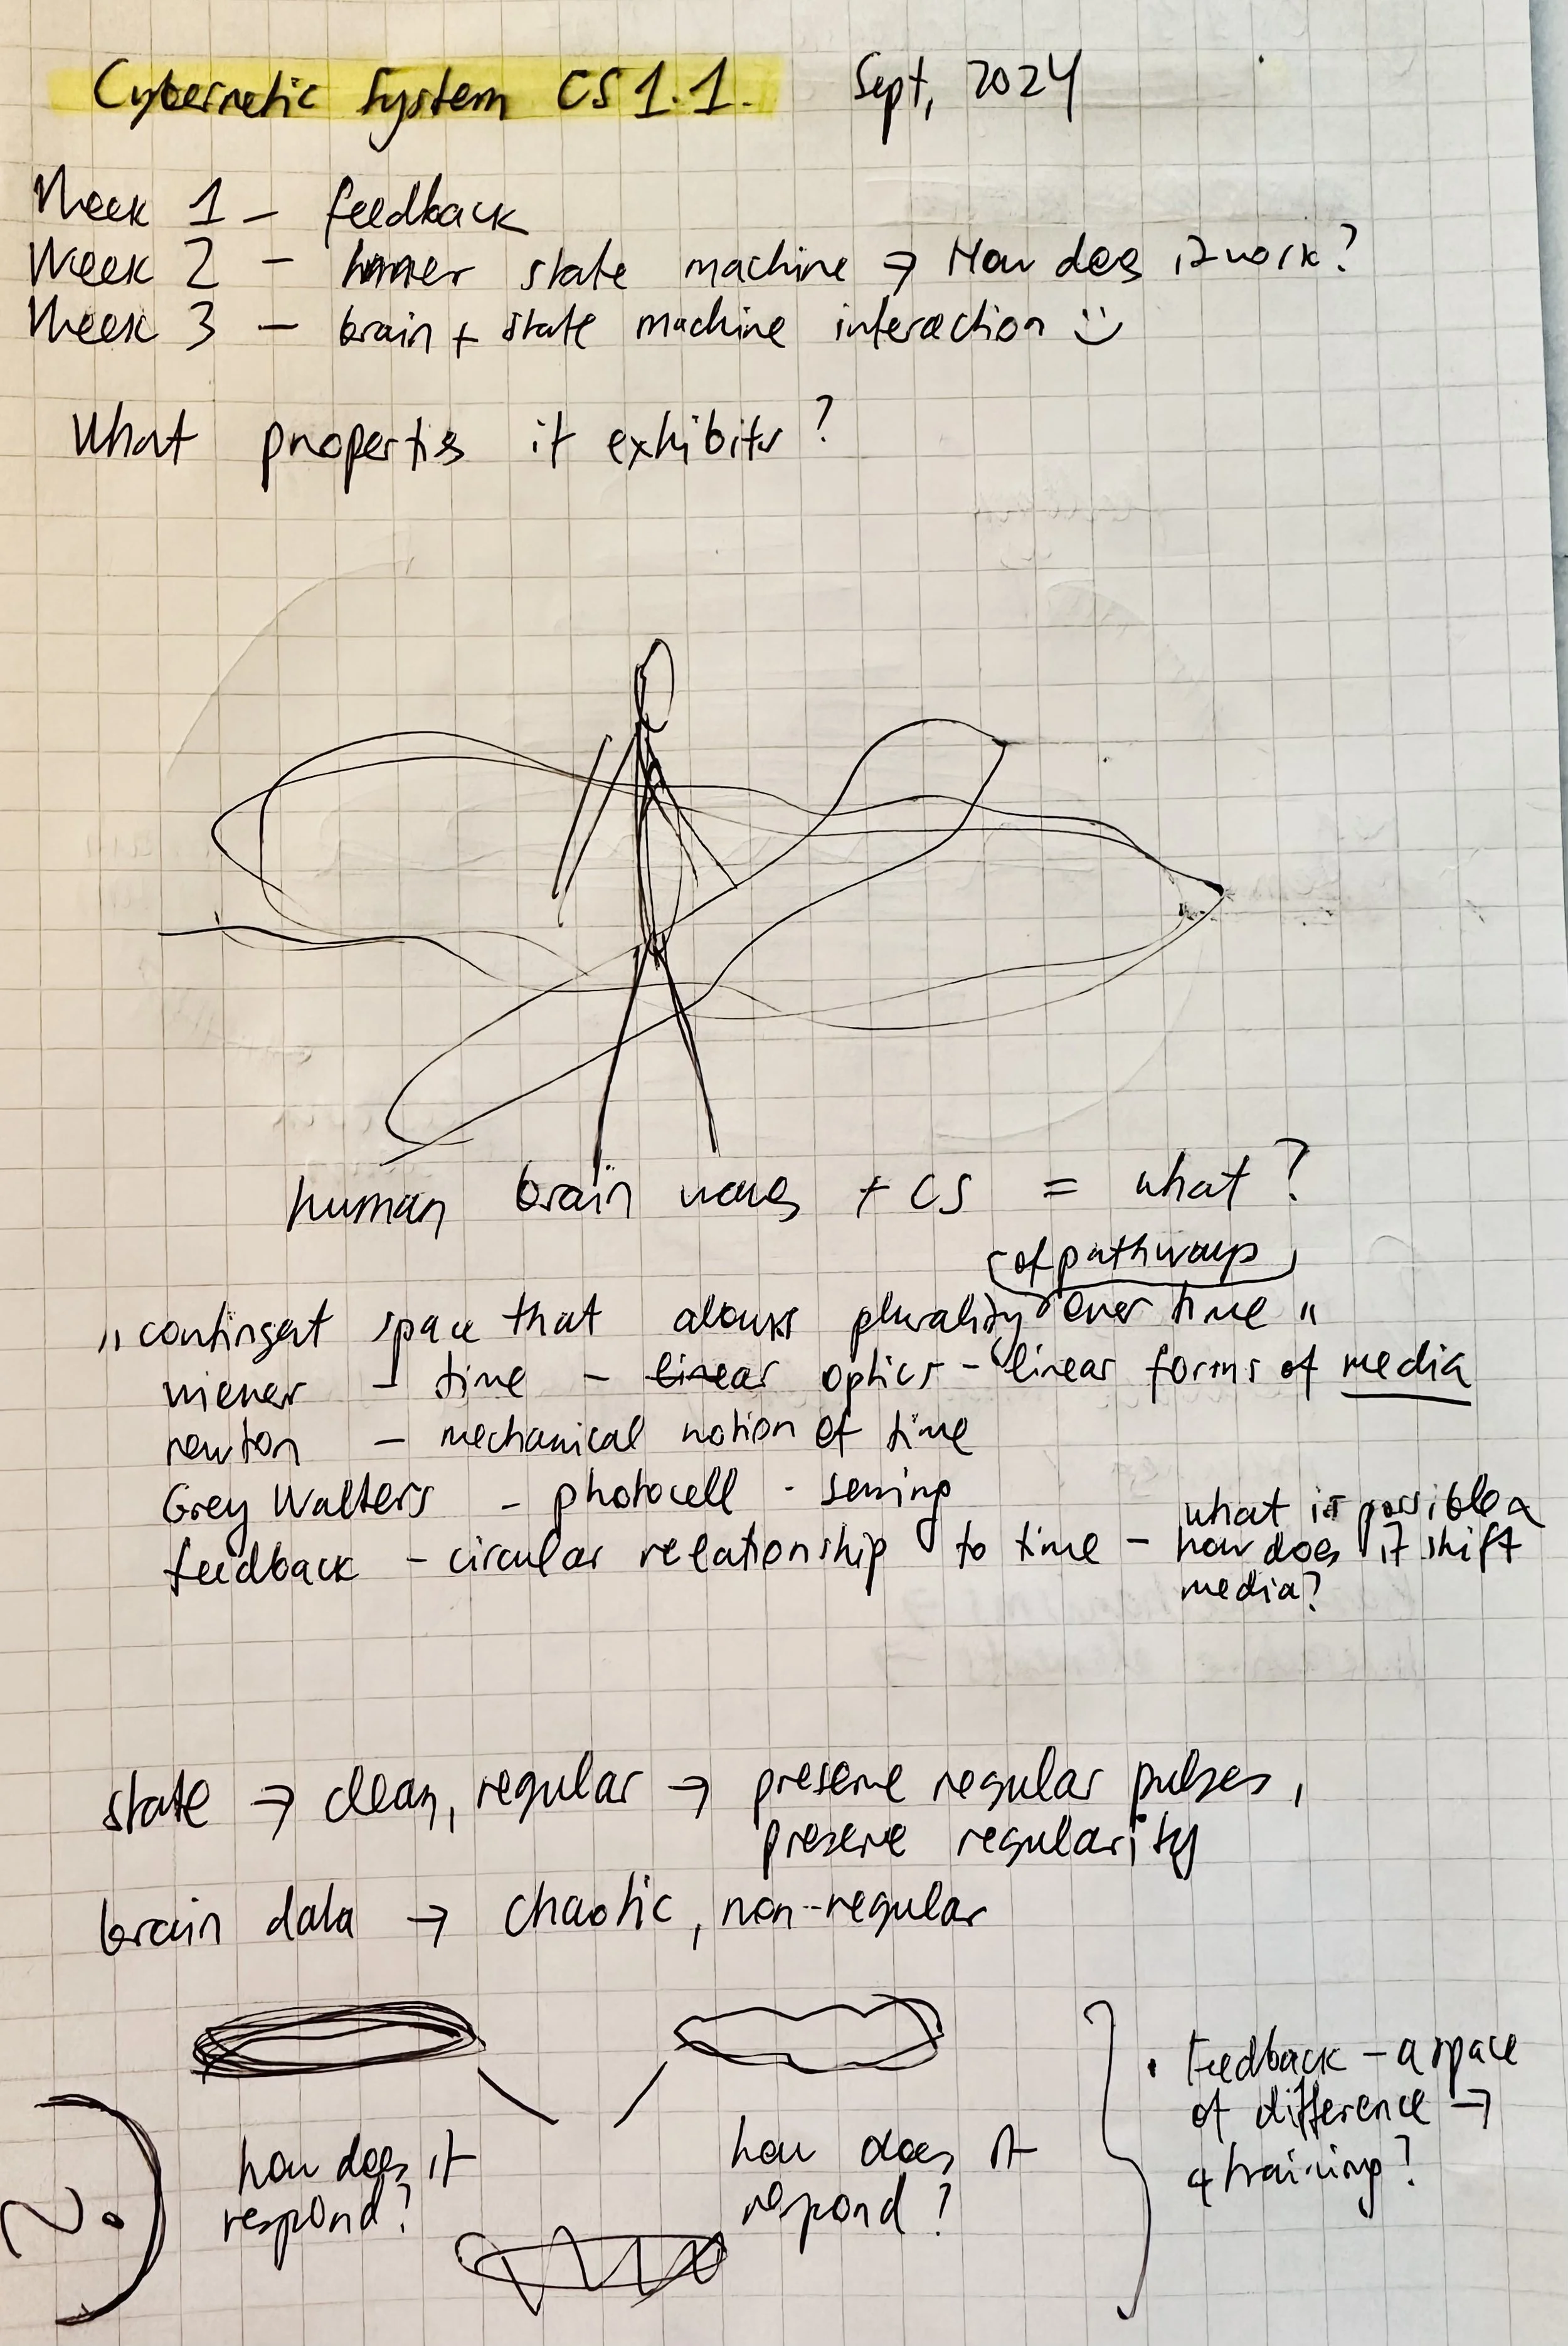 Cybernetic System CS 1.1. Sept, 2024
Week 1 – feedback
Week 2 – inner state machine → How does it work?
Week 3 – brain + state machine interaction :)
What properties it exhibits?
human brain waves + CS = what?
(of pathways)
„contingent space that allows plurality over time"
wiener – time – linear optics – linear forms of media
newton – mechanical notion of time
Grey Walters – photocell - sensing
feedback – circular relationship to time – what is possible
how does it shift
media?
state → clean, regular → preserve regular pulses,
preserve regularity
brain data → chaotic, non-regular
how does it
respond?
how does it
respond?
• Feedback – a space
of difference →
training?